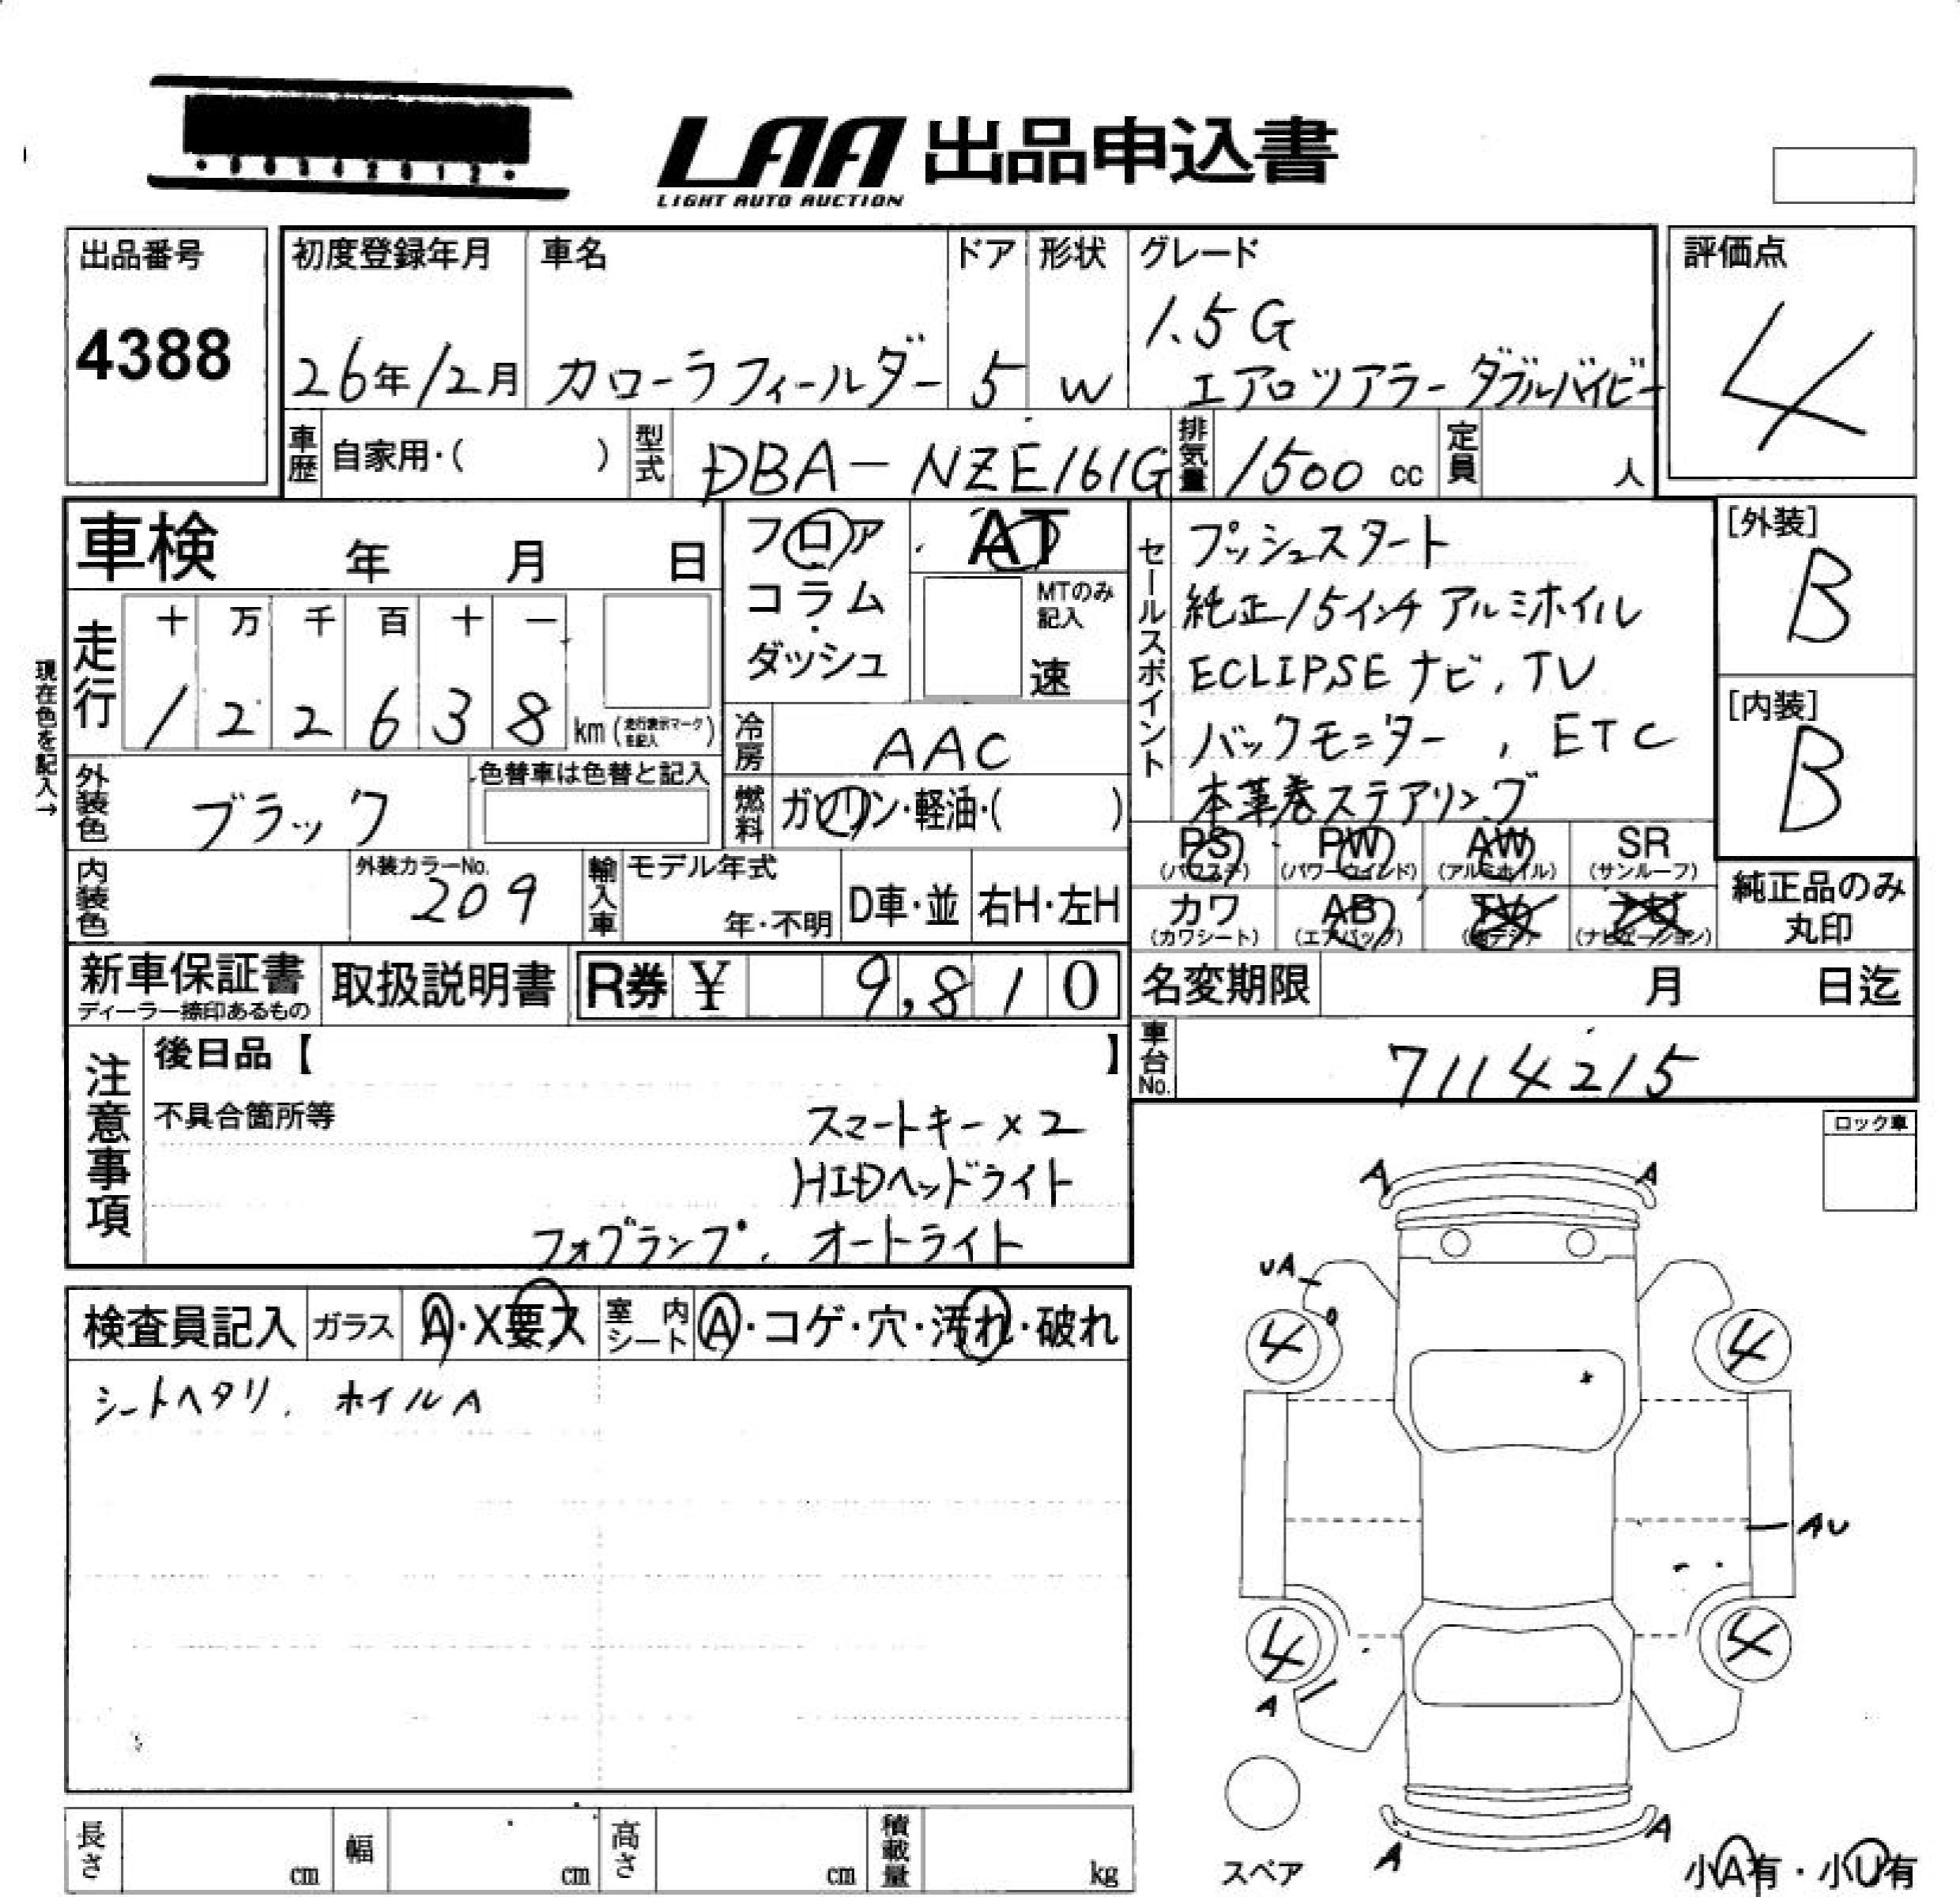 LAA 出品申込書
LIGHT AUTO AUCTION
出品番号
4388
初度登録年月
26年12月
車名
カローラフィールダー
ドア
5
形状
W
グレード
1.5G
エアロツアラーダブルバイビー
評価点
4
車歴 自家用・( )
型式 DBA-NZE161G
排気量 1500 cc
定員 人
車検 年 月 日
フロア
コラム
・
ダッシュ
AT
MTのみ
記入
速
セールスポイント
プッシュスタート
純正15インチアルミホイル
ECLIPSE ナビ, TV
バックモニター, ETC
本革巻ステアリング
[外装]
B
[内装]
B
現在色を記入→
走行
十 万 千 百 十 一
1 2 2 6 3 8 km (走行表示マークを記入)
冷房 AAC
外装色 ブラック
色替車は色替と記入
燃料 ガソリン・軽油・( )
PS (パワステ)
PW (パワーウインド)
AW (アルミホイル)
SR (サンルーフ)
カワ (カワシート)
AB (エアバッグ)
TV
(ナビゲーション)
純正品のみ
丸印
内装色
外装カラーNo.
209
輸入車
モデル年式
年・不明
D車・並
右H・左H
新車保証書
ディーラー捺印あるもの
取扱説明書
R券 ¥ 9,810
名変期限 月 日迄
車台No. 7114215
注意事項
後日品【 】
不具合箇所等
スマートキー×2
HIDヘッドライト
フォグランプ, オートライト
ロック車
検査員記入
ガラス A・X要ス
室内シート A・コゲ・穴・汚れ・破れ
シートヘタリ, ホイルA
A
A
UA
4
4
AU
4
4
A
A
A
スペア
小A有・小U有
長さ cm
幅 cm
高さ cm
積載量 kg